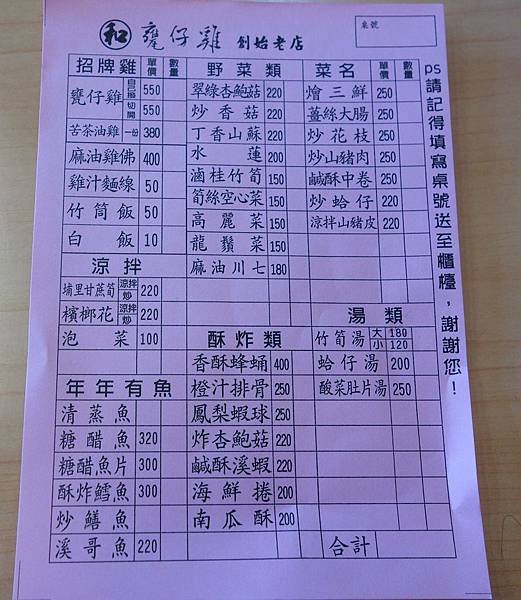 和 甕仔雞 創始老店
桌號
招牌雞 單價 數量
甕仔雞 自己撕 550
切開 550
苦茶油雞 一份 380
麻油雞佛 400
雞汁麵線 50
竹筒飯 50
白飯 10
涼拌
埔里甘蔗筍 涼拌 炒 220
檳榔花 涼拌 炒 220
泡菜 100
年年有魚
清蒸魚
糖醋魚 320
糖醋魚片 300
酥炸鱈魚 300
炒鱔魚
溪哥魚 220
野菜類 單價 數量
翠綠杏鮑菇 220
炒香菇 220
丁香山蘇 220
水蓮 200
滷桂竹筍 150
筍絲空心菜 150
高麗菜 150
龍鬚菜 150
麻油川七 180
酥炸類
香酥蜂蛹 400
橙汁排骨 250
鳳梨蝦球 250
炸杏鮑菇 220
鹹酥溪蝦 220
海鮮捲 200
南瓜酥 200
菜名 單價 數量
燴三鮮 250
薑絲大腸 250
炒花枝 250
炒山豬肉 250
鹹酥中卷 250
炒蛤仔 220
涼拌山豬皮 220
湯類
竹筍湯 大 180
小 120
蛤仔湯 200
酸菜肚片湯 250
合計
ps請記得填寫桌號送至櫃檯，謝謝您！